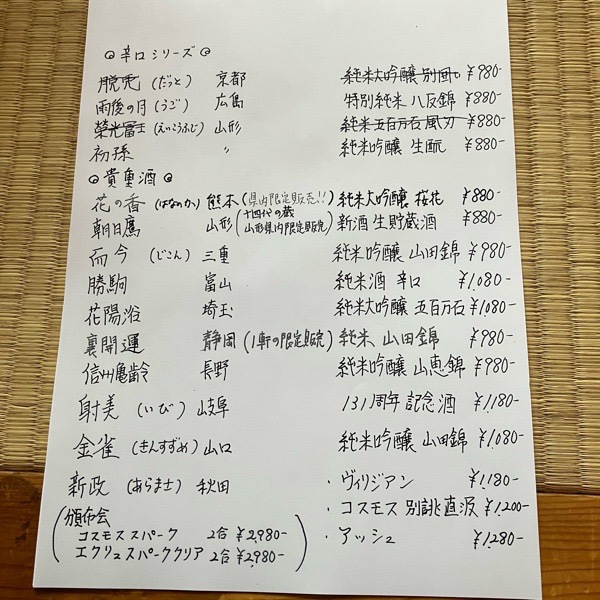 ◎辛口シリーズ◎
脱兎 (だっと) 京都 純米大吟醸 別囲 ¥980-
雨後の月 (うご) 広島 特別純米 八反錦 ¥880-
榮光冨士 (えいこうふじ) 山形 純米五百万石 風刃 ¥880-
初孫 〃 純米吟醸 生酛 ¥880-
◎貴重酒◎
花の香 (はなのか) 熊本 (県内限定販売!!) 純米大吟醸 桜花 ¥880-
朝日鷹 山形 (十四代の蔵 山形県内限定販売) 新酒 生貯蔵酒 ¥880-
而今 (じこん) 三重 純米吟醸 山田錦 ¥980-
勝駒 富山 純米酒 辛口 ¥1,080-
花陽浴 埼玉 純米大吟醸 五百万石 ¥1,080-
裏開運 静岡 (1軒の限定販売) 純米 山田錦 ¥980-
信州亀齢 長野 純米吟醸 山恵錦 ¥980-
射美 (いび) 岐阜 131周年 記念酒 ¥1,180-
金雀 (きんすずめ) 山口 純米吟醸 山田錦 ¥1,080-
新政 (あらまさ) 秋田 ・ヴィリジアン ¥1,180-
・コスモス 別誂直汲 ¥1,200-
・アッシュ ¥1,280-
(頒布会
コスモススパーク 2合 ¥2,980-
エクリュスパーククリア 2合 ¥2,980-)